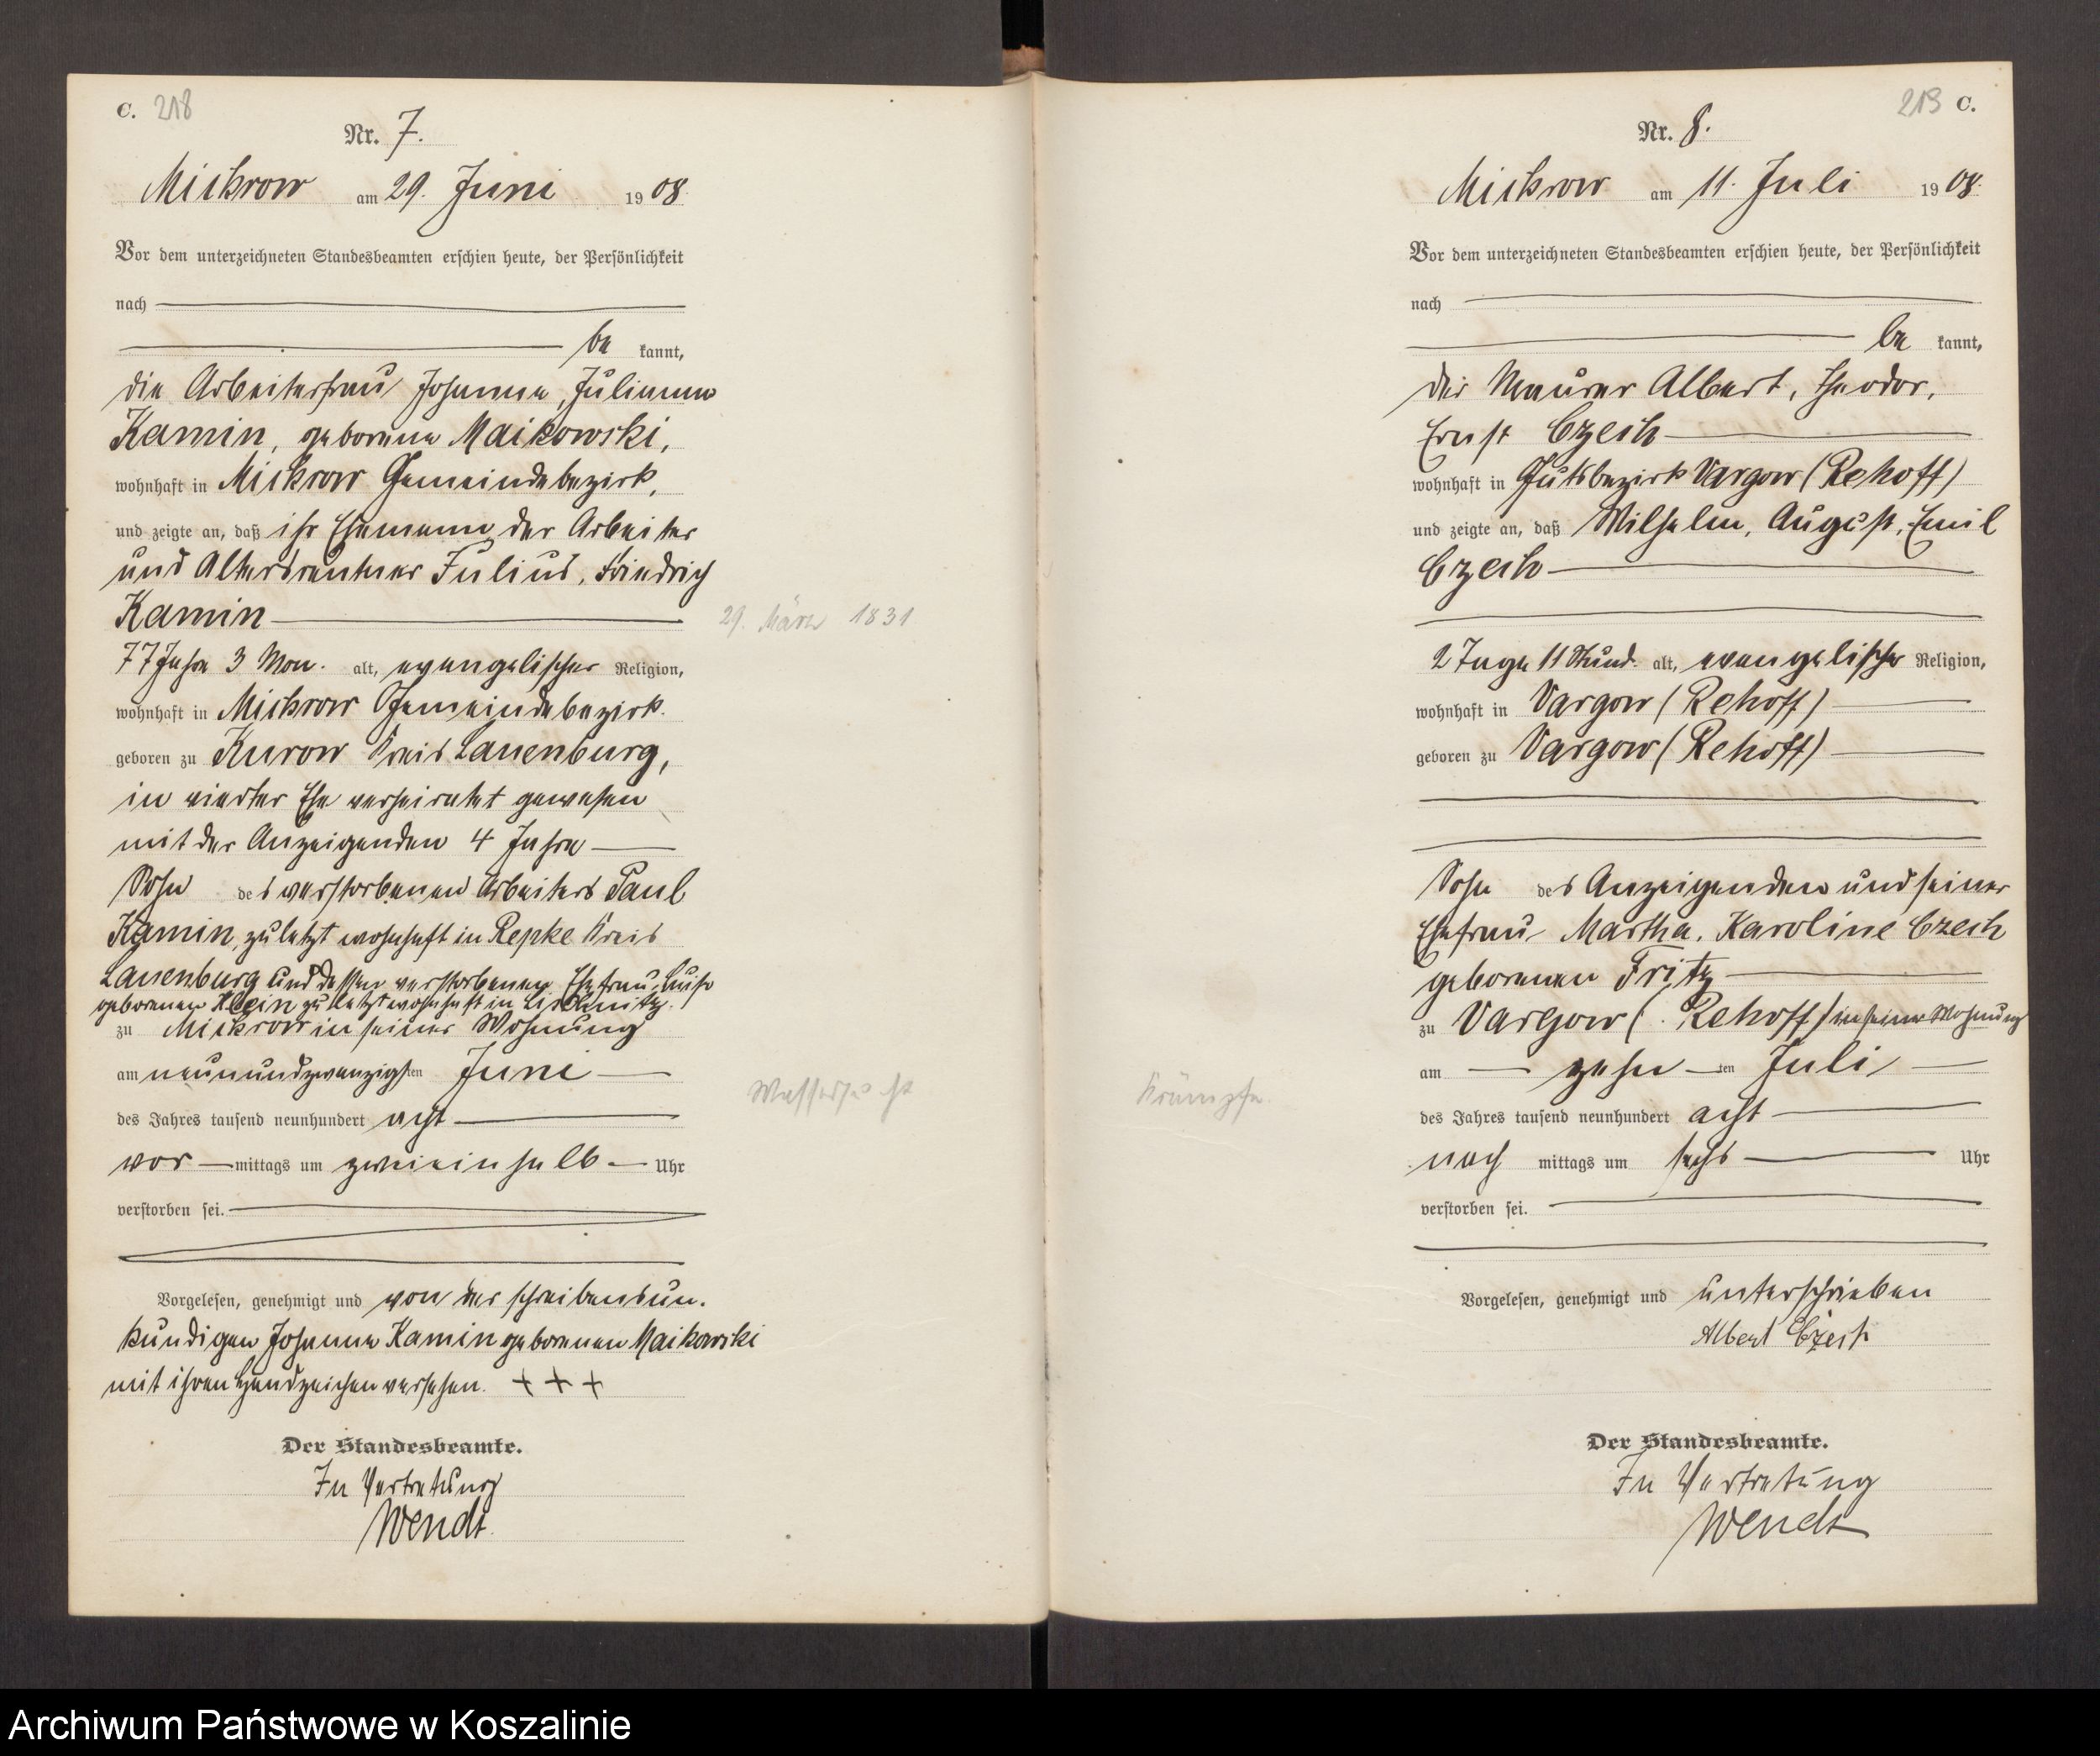 C. 218
Nr. 7.
Mickrow am 29. Juni 1908.
Vor dem unterzeichneten Standesbeamten erschien heute, der Persönlichkeit
nach
be kannt,
die Arbeiterfrau Johanna, Julianna
Kamin, geborene Maikowski,
wohnhaft in Mickrow Gemeindebezirk,
und zeigte an, daß ihr Ehemann, der Arbeiter
und Altersrentner Julius, Friedrich
Kamin
29. März 1831
77 Jahre 3 Mon. alt, evangelischer Religion,
wohnhaft in Mickrow Gemeindebezirk.
geboren zu Kurow Kreis Lauenburg,
in vierter Ehe verheiratet gewesen
mit der Anzeigenden 4 Jahre
Sohn des verstorbenen Arbeiters Paul
Kamin, zuletzt wohnhaft in Repke Kreis
Lauenburg und dessen verstorbenen Ehefrau, Luise
geborenen Klein zuletzt wohnhaft in Lischnitz.
zu Mickrow in seiner Wohnung
am neunundzwanzigsten Juni
Wassersucht
des Jahres tausend neunhundert acht
vor mittags um zweieinhalb Uhr
verstorben sei.
Vorgelesen, genehmigt und von der schreibensun-
kundigen Johanna Kamin geborenen Maikowski
mit ihren Handzeichen versehen. + + +
Der Standesbeamte.
In Vertretung
Wendt.
213 C.
Nr. 8.
Mickrow am 11. Juli 1908.
Vor dem unterzeichneten Standesbeamten erschien heute, der Persönlichkeit
nach
be kannt,
der Maurer Albert, Theodor,
Ernst Czech
wohnhaft in Gutsbezirk Vargow (Rehoff)
und zeigte an, daß Wilhelm, August, Emil
Czech
2 Tage 11 Stund. alt, evangelischer Religion,
wohnhaft in Vargow (Rehoff)
geboren zu Vargow (Rehoff)
Sohn des Anzeigenden und seiner
Ehefrau Martha, Karoline Czech
geborenen Fritz
zu Vargow (Rehoff) in seiner Wohnung
am zehnten Juli
Krämpfe.
des Jahres tausend neunhundert acht
nach mittags um sechs Uhr
verstorben sei.
Vorgelesen, genehmigt und unterschrieben
Albert Czech
Der Standesbeamte.
In Vertretung
Wendt
Archiwum Państwowe w Koszalinie